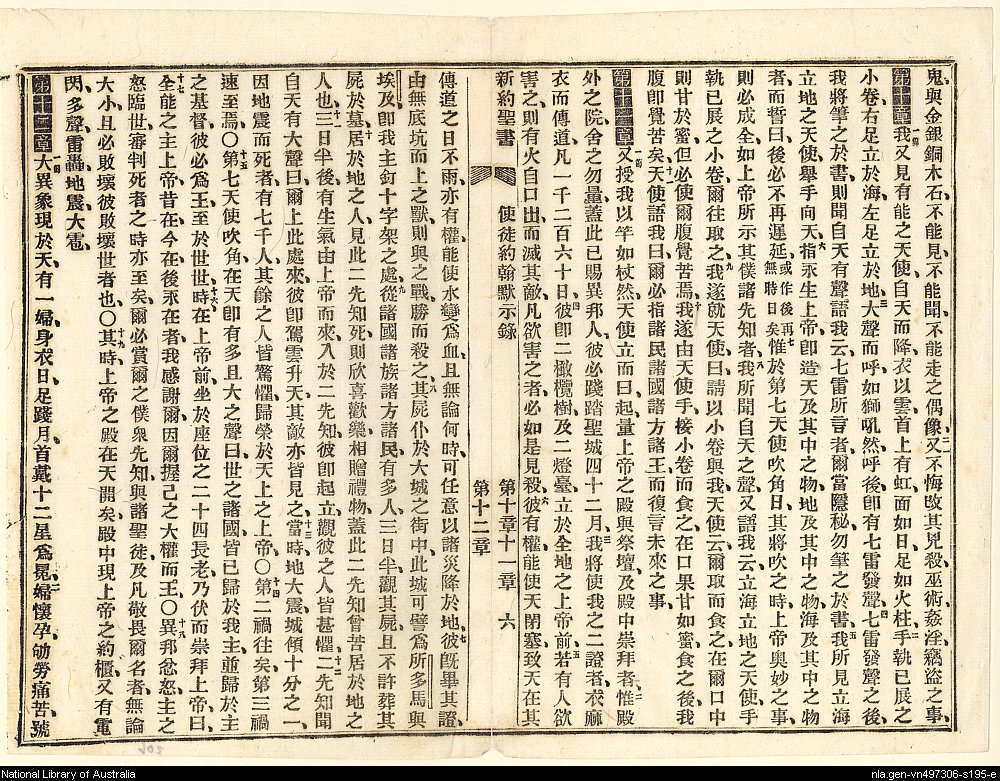 鬼與金銀銅木石不能見不能聞不能走之偶像又不悔改其兇殺巫術姦淫竊盜之事
第十章一節我又見有能之天使自天而降衣以雲首上有虹面如日足如火柱二手執已展之
小卷右足立於海左足立於地三大聲而呼如獅吼然呼後卽有七雷發聲四七雷發聲之後
我將筆之於書則聞自天有聲語我云七雷所言者爾當隱秘勿筆之於書五我所見立海
立地之天使舉手向天六指永生上帝卽造天及其中之物地及其中之物海及其中之物
者而誓曰後必不再遲延或作後再無時日矣七惟於第七天使吹角日其將吹之時上帝奧妙之事
則必成全如上帝所示其僕諸先知者八我所聞自天之聲又語我云立海立地之天使手
執已展之小卷爾往取之九我遂就天使曰請以小卷與我天使云爾取而食之在爾口中
則甘於蜜但必使爾腹覺苦焉十我遂由天使手接小卷而食之在口果甘如蜜食之後我
腹卽覺苦矣十一天使語我曰爾必指諸民諸國諸方諸王而復言未來之事
第十一章一節又授我以竿如杖然天使立而曰起量上帝之殿與祭壇及殿中崇拜者二惟殿
外之院舍之勿量蓋此已賜異邦人彼必踐踏聖城四十二月三我將使我之二證者衣麻
衣而傳道凡一千二百六十日四彼卽二橄欖樹及二燈臺立於全地之上帝前五若有人欲
害之則有火自口出而滅其敵凡欲害之者必如是見殺六彼有權能使天閉塞致天在其
新約聖書 使徒約翰默示錄 第十章十一章 第十二章 六
傳道之日不雨亦有權能使水變爲血且無論何時可任意以諸災降於地七彼旣畢其證
由無底坑而上之獸則與之戰勝而殺之八其屍仆於大城之街中此城可譬爲所多馬與
埃及卽我主釘十字架之處九從諸國諸族諸方諸民有多人三日半觀其屍且不許葬其
屍於墓十居於地之人見此二先知死則欣喜歡樂相贈禮物蓋此二先知曾苦居於地之
人也十一三日半後有生氣由上帝而來入於二先知彼卽起立觀彼之人皆甚懼十二二先知聞
自天有大聲曰爾上此處來彼卽駕雲升天其敵亦皆見之十三當時地大震城傾十分之一
因地震而死者有七千人其餘之人皆驚懼歸榮於天上之上帝〇十四第二禍往矣第三禍
速至焉〇十五第七天使吹角在天卽有多且大之聲曰世之諸國皆已歸於我主並歸於主
之基督彼必爲王至於世世十六時在上帝前坐於座位之二十四長老乃伏而崇拜上帝曰
十七全能之主上帝昔在今在後永在者我感謝爾因爾握己之大權而王〇十八異邦忿怒主之
怒臨世審判死者之時亦至矣爾必賞爾之僕衆先知與諸聖徒及凡敬畏爾名者無論
大小且必敗壞彼敗壞世者也〇十九其時上帝之殿在天開矣殿中現上帝之約櫃又有電
閃多聲雷轟地震大雹
第十二章一節大異象現於天有一婦身衣日足踐月首戴十二星爲冕二婦懷孕劬勞痛苦號
206
National Library of Australia
nla.gen-vn497306-s195-e